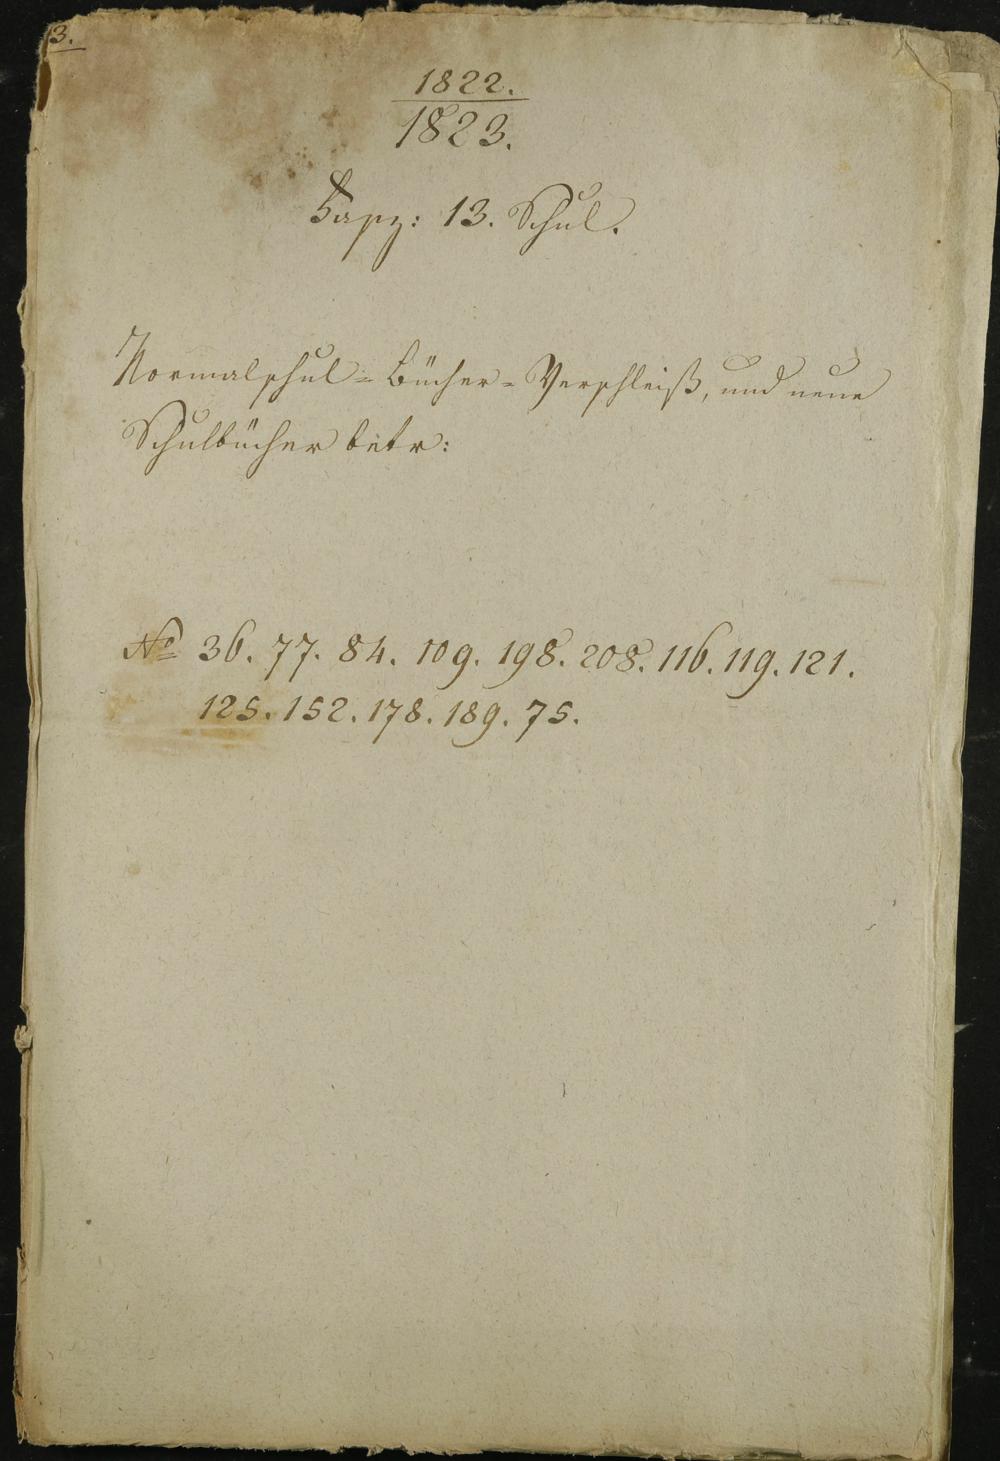 3.
1822.
1823.
Fasz: 13. Schul.
Normalschul=Bücher=Verschleiß, und neue
Schulbücher betr:
No 36. 77. 84. 109. 198. 208. 116. 119. 121.
125. 152. 178. 189. 75.